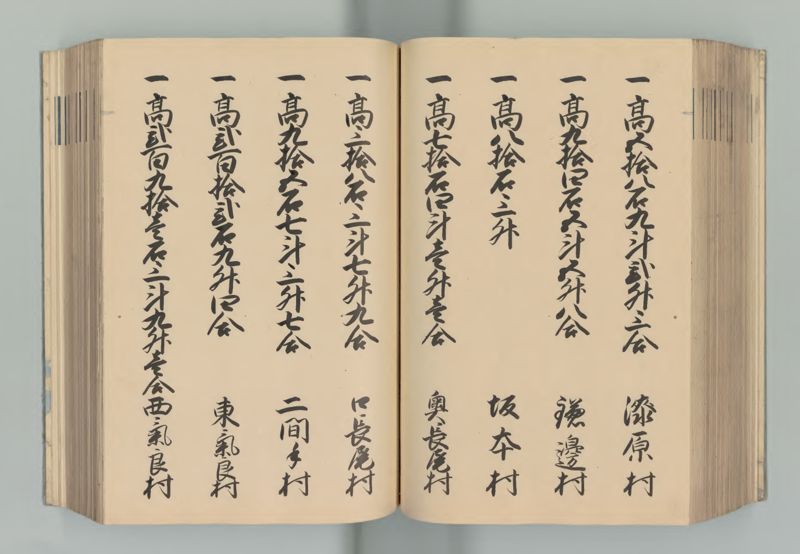 一高五拾八石九斗弐升三合 漆原村
一高九拾四石五斗五升八合 鎌邊村
一高八拾石三升 坂本村
一高七拾石四斗壱升壱合 奥長尾村
一高三拾八石三斗七升九合 口長尾村
一高九拾五石七斗三升七合 二間手村
一高弐百拾弐石九升四合 東氣良村
一高弐百九拾壱石三斗九升壱合 西氣良村